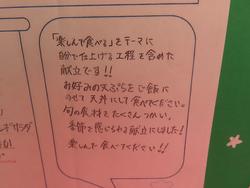 「楽しんで食べる」をテーマに
自分で仕上げる工程を含めた
献立です!!
お好みの天ぷらをご飯に
のせて天丼にして食べてください。
旬の食材もたくさんつかい、
季節を感じられる献立にしました!
楽しんで食べてください!!